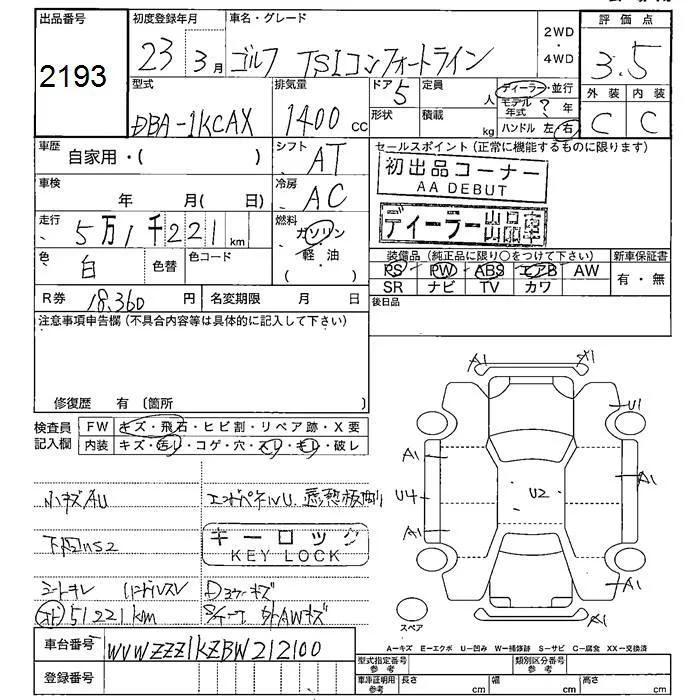 出品番号
2193
初度登録年月
23 3月
車名・グレード
ゴルフ TSIコンフォートライン
2WD
・
4WD
評価点
3.5
外装 内装
C C
型式
DBA-1KCAX
排気量
1400 cc
ドア 5
形状
定員 人
積載 kg
ディーラー・並行
モデル年式 ? 年
ハンドル 左・右
車歴 自家用・( )
シフト AT
車検 年 月( 日)
冷房 AC
走行 5万1千221km
燃料 ガソリン
・軽・油
( )
色 白
色替
色コード
R券 18,360 円
名変期限 月 日
セールスポイント(正常に機能するものに限ります)
初出品コーナー
AA DEBUT
ディーラー出品車
装備品(純正品に限り○をつけて下さい)
新車保証書
PS PW ABS エアB AW
SR ナビ TV カワ
有・無
後日品
注意事項申告欄(不具合内容等は具体的に記入して下さい)
修復歴 有(箇所 )
検査員記入欄
FW キズ・飛石・ヒビ割・リペア跡・X要
内装 キズ・汚レ・コゲ・穴・スレ・キレ・破レ
小キズAU
キーロック
KEY LOCK
シートキレ
51221km
A1 A1
U1
A1
A1
U4
U2
A1
A1
A1
スペア
A-キズ E-エクボ U-凹み W-補修跡 S-サビ C-腐食 XX-交換済
車台番号
WVWZZZ1KZBW212100
登録番号
型式指定番号 参考
類別区分番号 参考
車庫証明用 参考
長さ cm
幅 cm
高さ cm